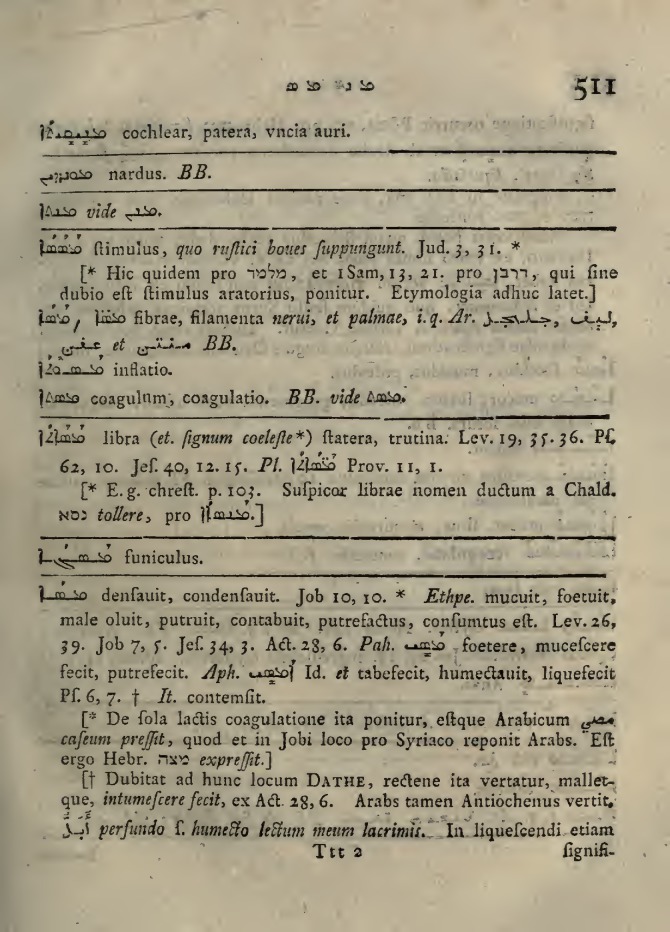 511
cochlear, patera, vncia auri.
nardus. BB.
vide
ſtimulus, quo ruſtici boues ſuppungunt. Jud. 3, 31. *
[* Hic quidem pro מלמד, et 1Sam, 13, 21. pro דרבן, qui ſine
dubio eſt ſtimulus aratorius, ponitur. Etymologia adhuc latet.]
fibrae, filamenta nerui, et palmae, i. q. Ar. ليف,
et BB.
inflatio.
coagulum, coagulatio. BB. vide
libra (et. ſignum coeleſte*) ſtatera, trutina. Lev. 19, 35. 36. Pſ.
62, 10. Jeſ. 40, 12. 15. Pl. Prov. 11, 1.
[* E. g. chreſt. p. 103. Suſpicor librae nomen ductum a Chald.
נסא tollere, pro .]
funiculus.
denſauit, condenſauit. Job 10, 10. * Ethpe. mucuit, foetuit,
male oluit, putruit, contabuit, putrefactus, conſumtus eſt. Lev. 26,
39. Job 7, 5. Jeſ. 34, 3. Act. 28, 6. Pah. foetere, muceſcere
fecit, putrefecit. Aph. Id. et tabefecit, humectauit, liquefecit
Pſ. 6, 7. † It. contemſit.
[* De ſola lactis coagulatione ita ponitur, eſtque Arabicum
caſeum preſſit, quod et in Jobi loco pro Syriaco reponit Arabs. Eſt
ergo Hebr. מצה expreſſit.]
[† Dubitat ad hunc locum DATHE, rectene ita vertatur, mallet-
que, intumeſcere fecit, ex Act. 28, 6. Arabs tamen Antiochenus vertit,
perfundo ſ. humecto lectum meum lacrimis. In liqueſcendi etiam
Ttt 2 ſignifi-